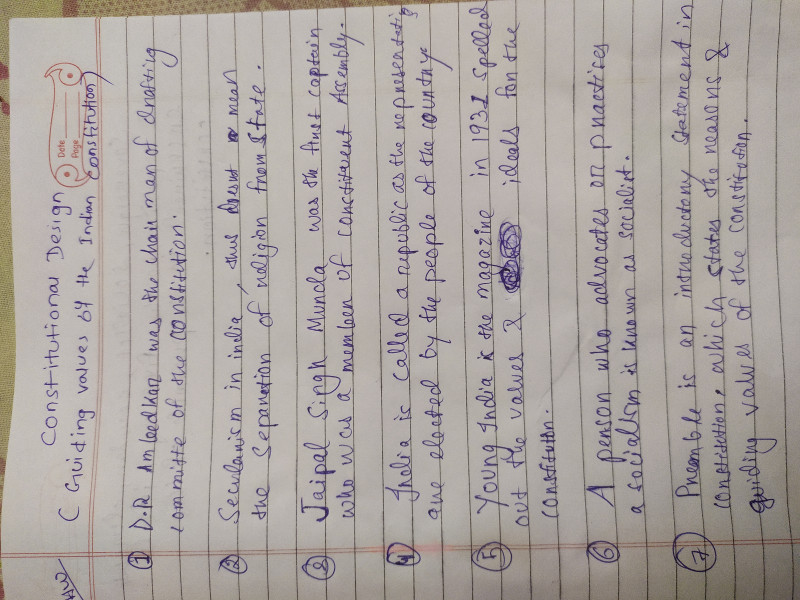 Date
Page
Constitutional Design
C Guiding values of the Indian constitution)
① D.R Ambedkar was the chair man of drafting
committe of the constitution.
② Secularism in india, thus doesnt mean
the separation of religion from state.
③ Jaipal Singh Munda was the first captain
who was a member of constituent Assembly.
④ India is called a republic as the representativ
are elected by the people of the country
⑤ Young India is the magazine in 1931 spelled
out the values & ideals for the
constitution.
⑥ A person who advocates or practices
a socialism is known as socialist.
⑦ Preamble is an introductory statement in
constitution, which states the reasons &
guiding values of the constitution.